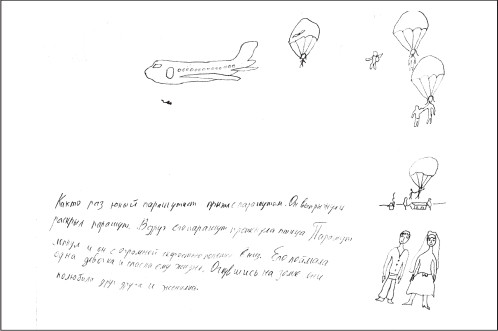 Както раз юный парашутист прыгнул с парашутом. Он
раскрыл парашут. Вдруг его парашут проткнула птица. Парашут
и он с огромной скоростью полетел в низ. Его поймала
одна девочка и спасла ему жизнь. на землю они
полюбили друг друга и женились.